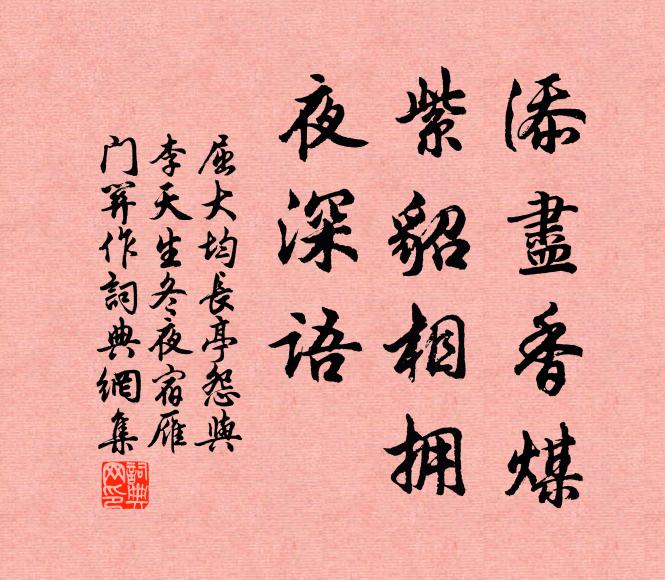 添盡香煤
紫貂相拥
夜深語
屈大均長亭怨與
李天生冬夜宿雁
门関作詞典網集
詞典网印